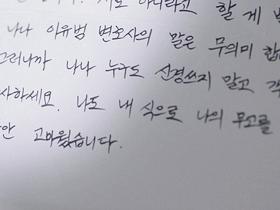 지도 아니라고 할 게 ㅂ
나나 이유범 변호사의 말은 무의미 합
그러니까 나나 누구도 신경쓰지 말고 각
사하세요. 나도 내 식으로 나의 무고를
안 고마웠습니다.